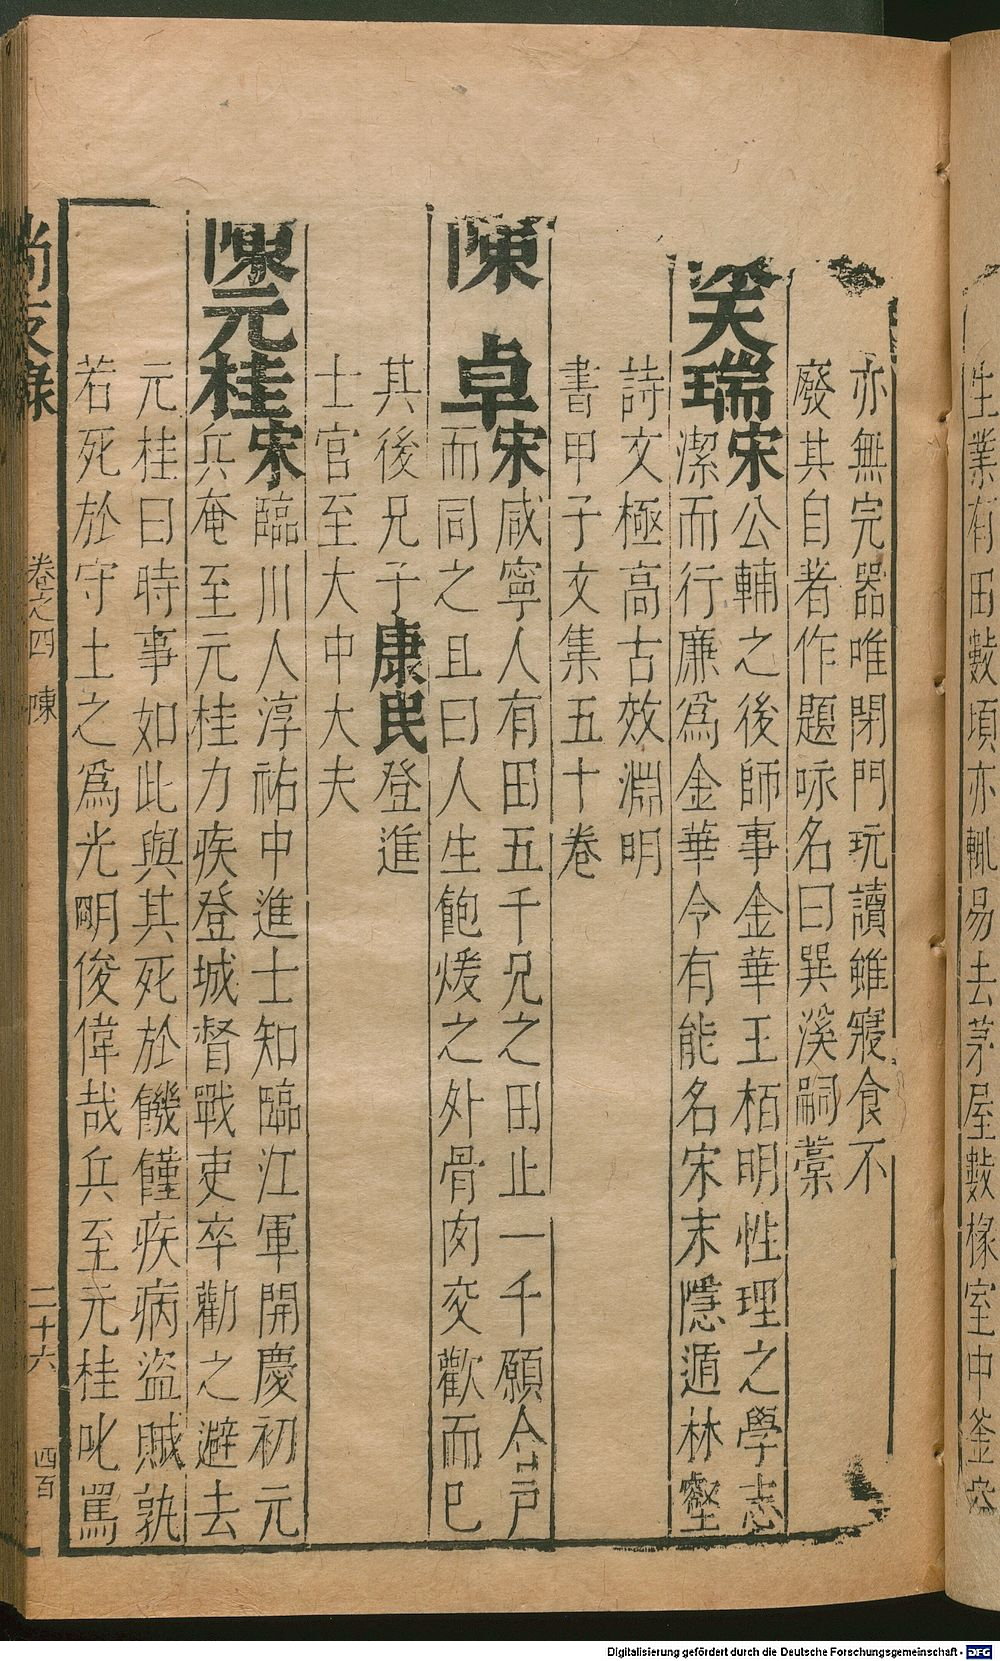 生業有田數頃亦輒易去茅屋數椽室中釜
亦無完器唯閉門玩讀雖寢食不
廢其自著作題咏名曰巽溪嗣藁
天瑞宋公輔之後師事金華王栢明性理之學志
潔而行廉爲金華令有能名宋末隱遁林壑
詩文極高古效淵明
書甲子文集五十卷
陳卓宋咸寧人有田五千兄之田止一千願合戸
而同之且曰人生飽煖之外骨肉交歡而已
其後兄子康民登進
士官至大中大夫
陳元桂宋臨川人淳祐中進士知臨江軍開慶初元
兵奄至元桂力疾登城督戰吏卒勸之避去
元桂曰時事如此與其死於饑饉疾病盜賊孰
若死於守土之爲光明俊偉哉兵至元桂叱罵
尚友錄 卷之四 陳 二十六 四百
Digitalisierung gefördert durch die Deutsche Forschungsgemeinschaft - DFG